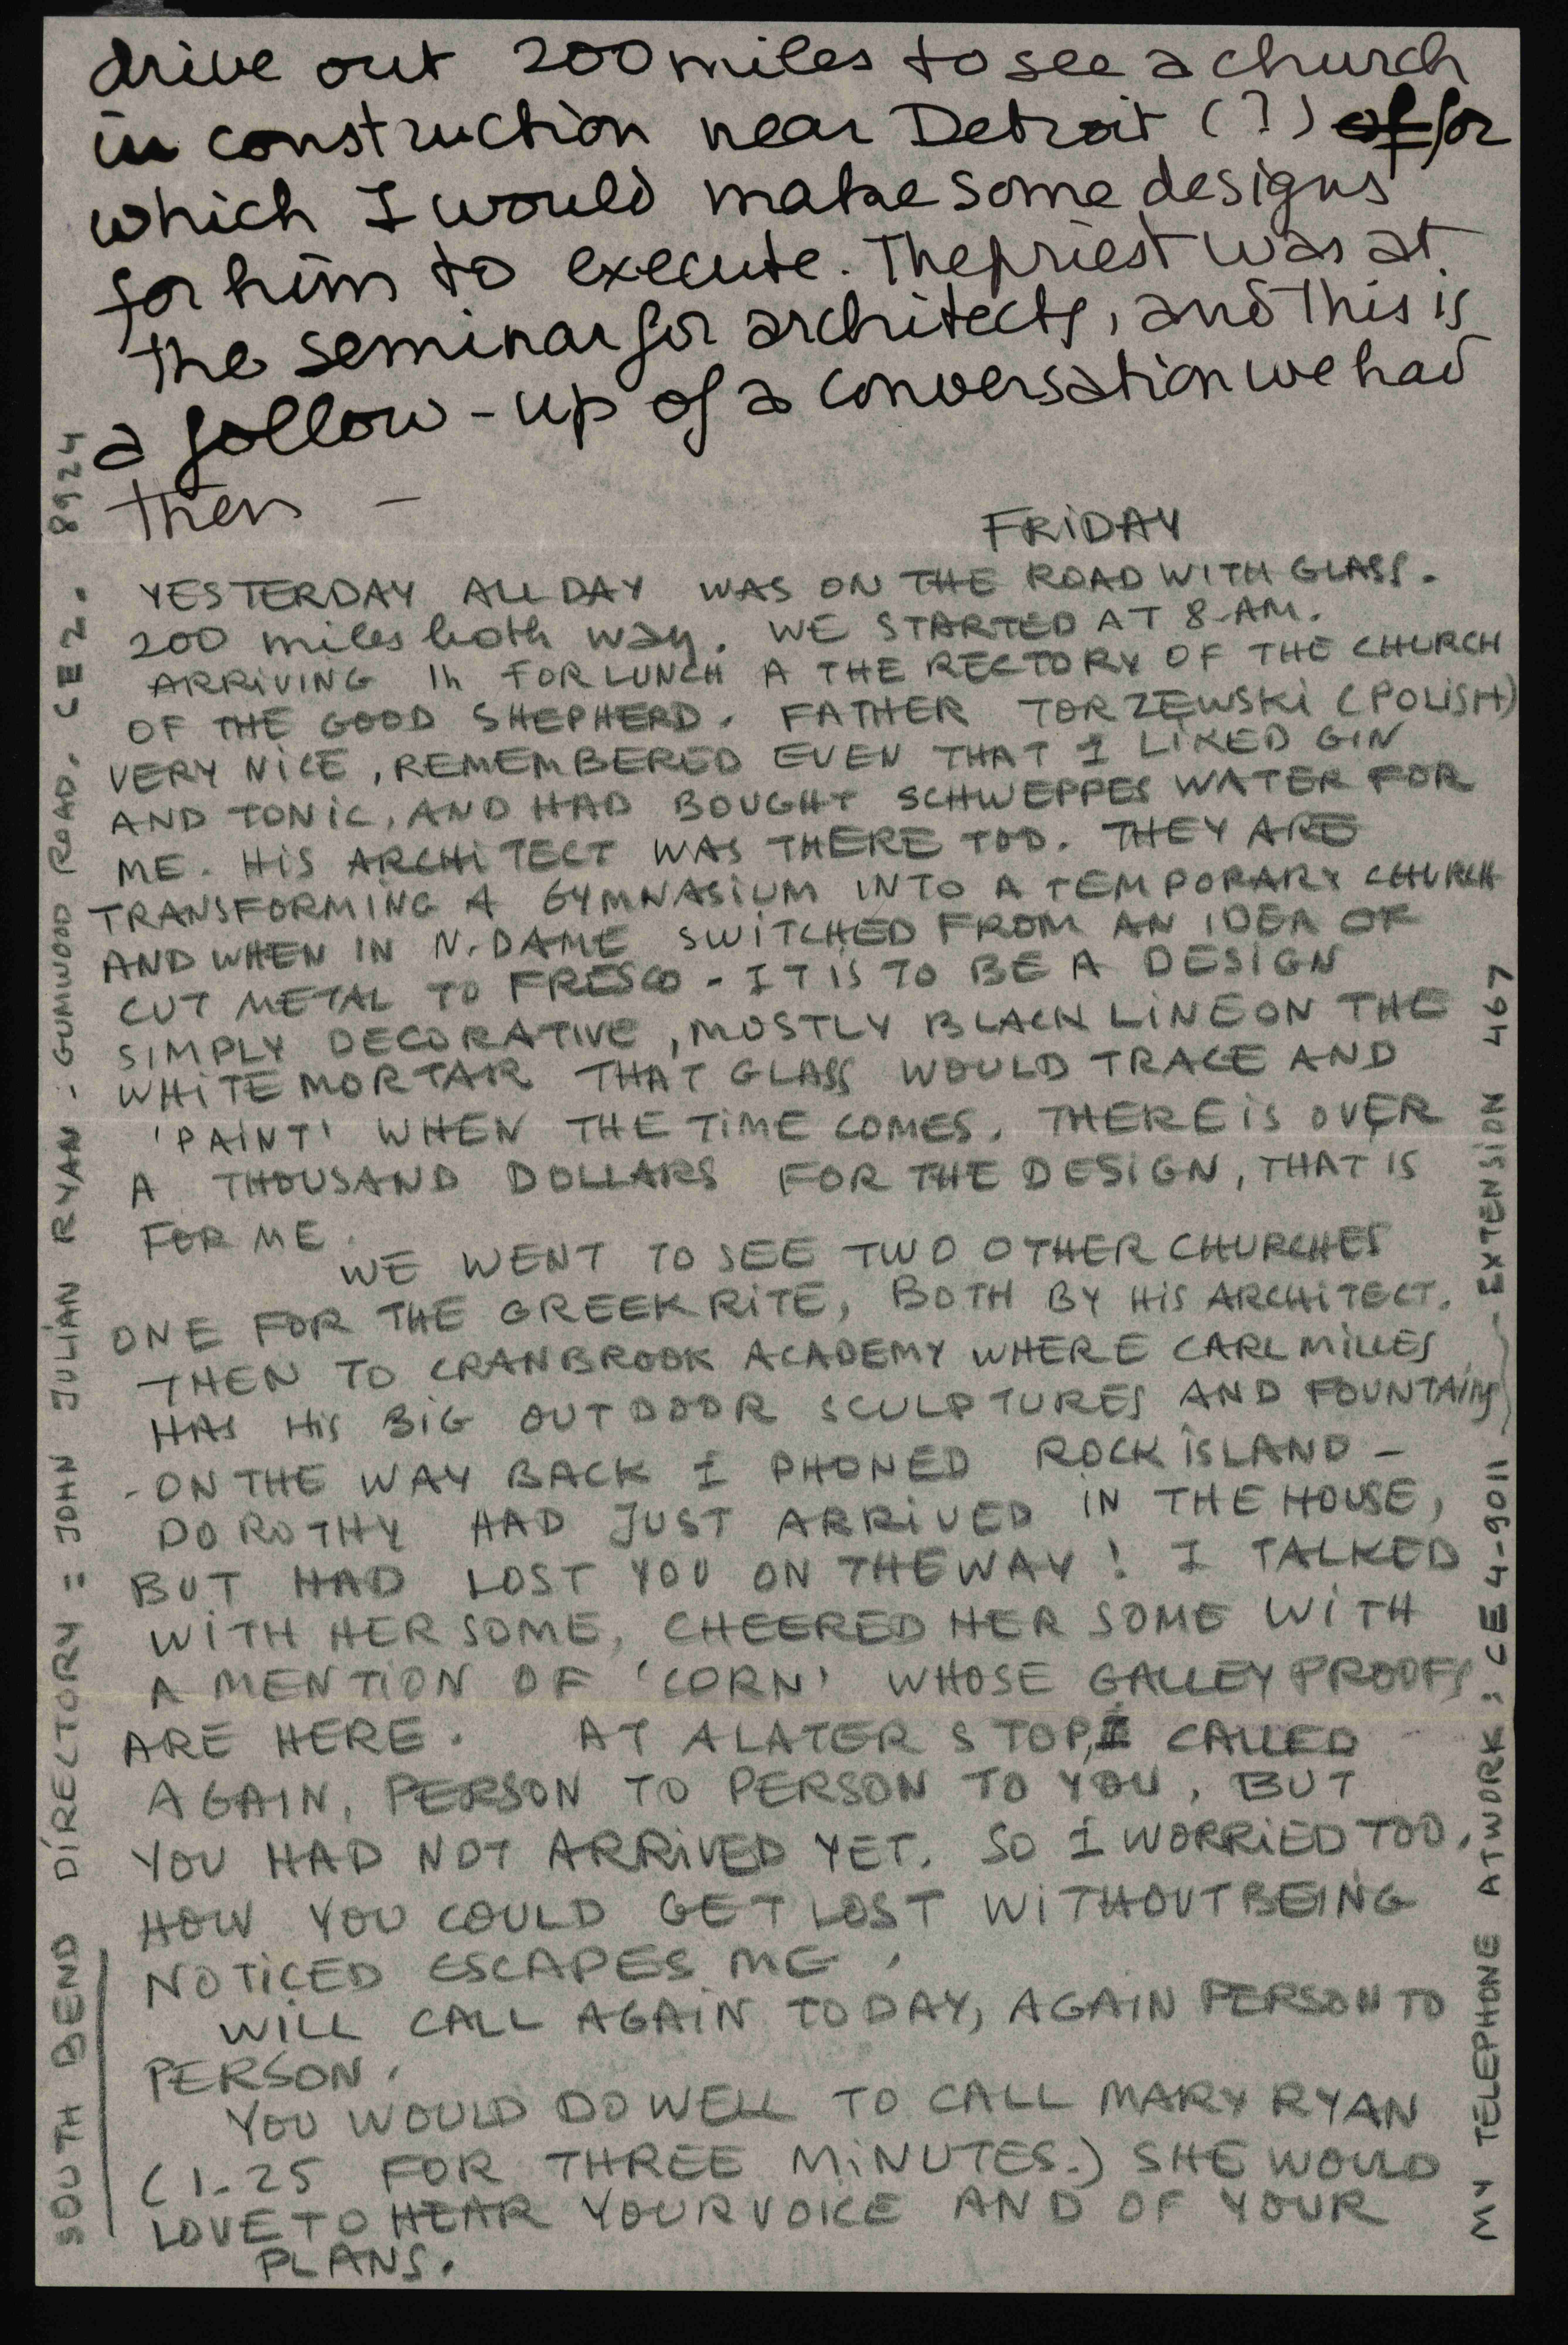 drive out 200 miles to see a church
in construction near Detroit (?) of for
which I would make some designs
for him to execute. The priest was at
the seminar for architects, and this is
a follow-up of a conversation we had
then —
FRIDAY
YESTERDAY ALL DAY WAS ON THE ROAD WITH GLASS.
200 miles both way. WE STARTED AT 8 AM.
ARRIVING 1h FOR LUNCH A THE RECTORY OF THE CHURCH
OF THE GOOD SHEPHERD. FATHER TORZEWSKI (POLISH)
VERY NICE, REMEMBERED EVEN THAT I LIKED GIN
AND TONIC, AND HAD BOUGHT SCHWEPPES WATER FOR
ME. HIS ARCHITECT WAS THERE TOO. THEY ARE
TRANSFORMING A GYMNASIUM INTO A TEMPORARY CHURCH
AND WHEN IN N. DAME SWITCHED FROM AN IDEA OF
CUT METAL TO FRESCO - IT IS TO BE A DESIGN
SIMPLY DECORATIVE, MOSTLY BLACK LINE ON THE
WHITE MORTAR THAT GLASS WOULD TRACE AND
'PAINT' WHEN THE TIME COMES. THERE IS OVER
A THOUSAND DOLLARS FOR THE DESIGN, THAT IS
FOR ME.
WE WENT TO SEE TWO OTHER CHURCHES
ONE FOR THE GREEK RITE, BOTH BY HIS ARCHITECT.
THEN TO CRANBROOK ACADEMY WHERE CARL MILLES
HAS HIS BIG OUTDOOR SCULPTURES AND FOUNTAINS
- ON THE WAY BACK I PHONED ROCK ISLAND —
DOROTHY HAD JUST ARRIVED IN THE HOUSE,
BUT HAD LOST YOU ON THE WAY! I TALKED
WITH HER SOME, CHEERED HER SOME WITH
A MENTION OF 'CORN' WHOSE GALLEY PROOFS
ARE HERE. AT A LATER STOP, I CALLED
AGAIN, PERSON TO PERSON TO YOU, BUT
YOU HAD NOT ARRIVED YET. SO I WORRIED TOO.
HOW YOU COULD GET LOST WITHOUT BEING
NOTICED ESCAPES ME.
WILL CALL AGAIN TODAY, AGAIN PERSON TO
PERSON.
YOU WOULD DO WELL TO CALL MARY RYAN
(1.25 FOR THREE MINUTES.) SHE WOULD
LOVE TO HEAR YOUR VOICE AND OF YOUR
PLANS.
SOUTH BEND DIRECTORY = JOHN JULIAN RYAN : GUMWOOD ROAD. CE 2. 8924
MY TELEPHONE AT WORK : CE 4-9011 — EXTENSION 467